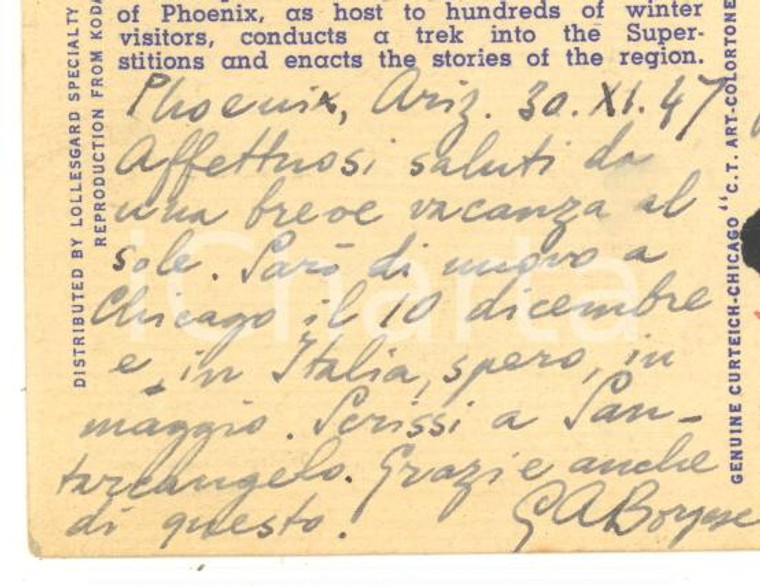 of Phoenix, as host to hundreds of winter
visitors, conducts a trek into the Super-
stitions and enacts the stories of the region.
Phoenix, Ariz. 30. XI. 47
Affettuosi saluti da
una breve vacanza al
sole. Sarò di nuovo a
Chicago il 10 dicembre
e, in Italia, spero, in
maggio. Scrissi a San-
tarcangelo. Grazie anche
di questo.
G A Borgese
DISTRIBUTED BY LOLLESGARD SPECIALTY
REPRODUCTION FROM KODA
GENUINE CURTEICH-CHICAGO "C. T. ART-COLORTONE
iCharta